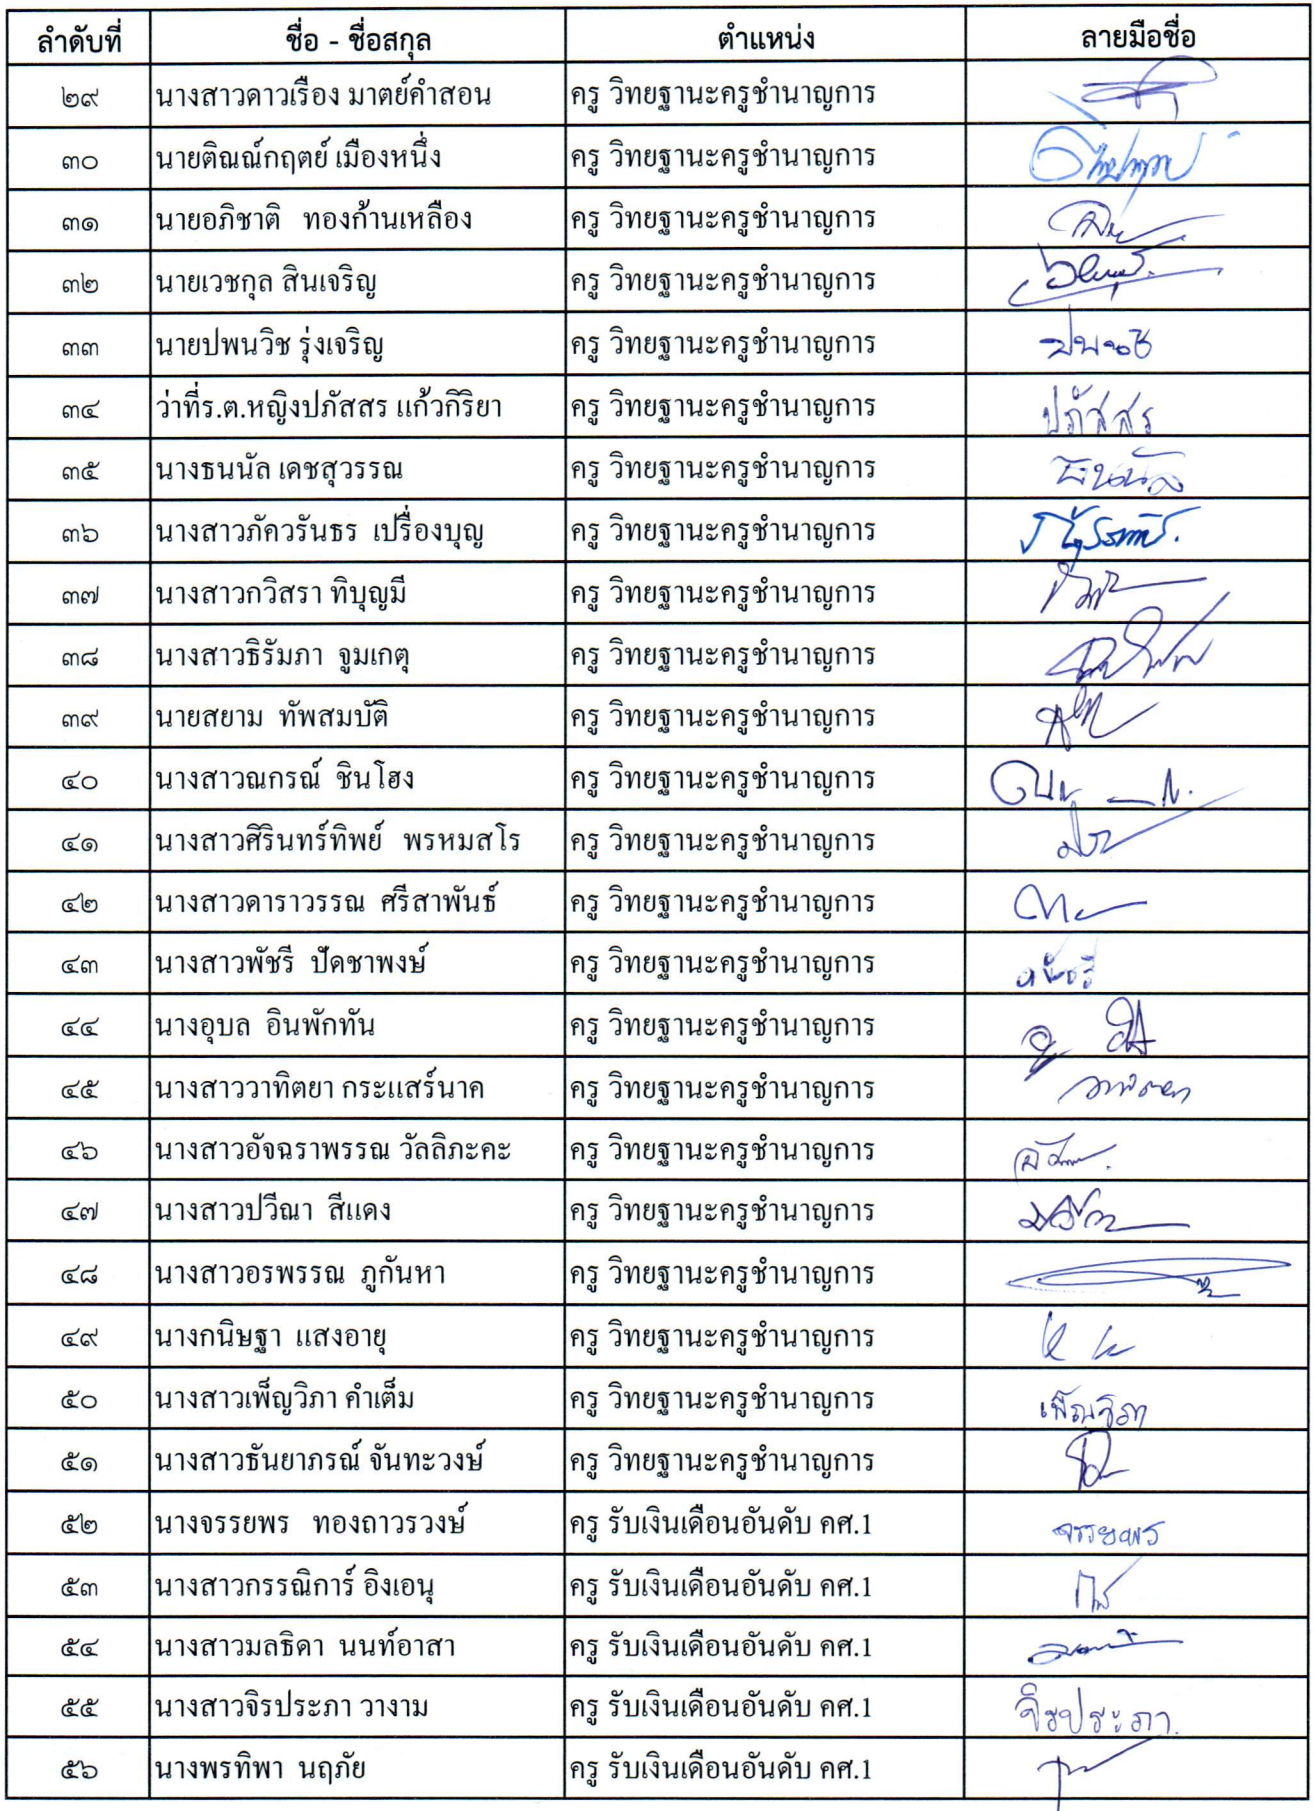 ลำดับที่ ชื่อ - ชื่อสกุล ตำแหน่ง ลายมือชื่อ
๒๙ นางสาวดาวเรือง มาตย์คำสอน ครู วิทยฐานะครูชำนาญการ
๓๐ นายติณณ์กฤตย์ เมืองหนึ่ง ครู วิทยฐานะครูชำนาญการ
๓๑ นายอภิชาติ ทองก้านเหลือง ครู วิทยฐานะครูชำนาญการ
๓๒ นายเวชกุล สินเจริญ ครู วิทยฐานะครูชำนาญการ
๓๓ นายปพนวิช รุ่งเจริญ ครู วิทยฐานะครูชำนาญการ
๓๔ ว่าที่ร.ต.หญิงปภัสสร แก้วกิริยา ครู วิทยฐานะครูชำนาญการ ปภัสสร
๓๕ นางธนนัล เดชสุวรรณ ครู วิทยฐานะครูชำนาญการ ธนนัล
๓๖ นางสาวภัควรันธร เปรื่องบุญ ครู วิทยฐานะครูชำนาญการ
๓๗ นางสาวกวิสรา ทิบุญมี ครู วิทยฐานะครูชำนาญการ
๓๘ นางสาวธิรัมภา จูมเกตุ ครู วิทยฐานะครูชำนาญการ
๓๙ นายสยาม ทัพสมบัติ ครู วิทยฐานะครูชำนาญการ
๔๐ นางสาวณกรณ์ ชินโฮง ครู วิทยฐานะครูชำนาญการ
๔๑ นางสาวศิรินทร์ทิพย์ พรหมสโร ครู วิทยฐานะครูชำนาญการ
๔๒ นางสาวดาราวรรณ ศรีสาพันธ์ ครู วิทยฐานะครูชำนาญการ
๔๓ นางสาวพัชรี ปัดชาพงษ์ ครู วิทยฐานะครูชำนาญการ พัชรี
๔๔ นางอุบล อินพักทัน ครู วิทยฐานะครูชำนาญการ
๔๕ นางสาววาทิตยา กระแสร์นาค ครู วิทยฐานะครูชำนาญการ
๔๖ นางสาวอัจฉราพรรณ วัลลิภะคะ ครู วิทยฐานะครูชำนาญการ
๔๗ นางสาวปวีณา สีแดง ครู วิทยฐานะครูชำนาญการ
๔๘ นางสาวอรพรรณ ภูกันหา ครู วิทยฐานะครูชำนาญการ
๔๙ นางกนิษฐา แสงอายุ ครู วิทยฐานะครูชำนาญการ
๕๐ นางสาวเพ็ญวิภา คำเต็ม ครู วิทยฐานะครูชำนาญการ เพ็ญวิภา
๕๑ นางสาวธันยาภรณ์ จันทะวงษ์ ครู วิทยฐานะครูชำนาญการ
๕๒ นางจรรยพร ทองถาวรวงษ์ ครู รับเงินเดือนอันดับ คศ.1 จรรยพร
๕๓ นางสาวกรรณิการ์ อิงเอนุ ครู รับเงินเดือนอันดับ คศ.1
๕๔ นางสาวมลธิดา นนท์อาสา ครู รับเงินเดือนอันดับ คศ.1
๕๕ นางสาวจิรประภา วางาม ครู รับเงินเดือนอันดับ คศ.1 จิรประภา.
๕๖ นางพรทิพา นฤภัย ครู รับเงินเดือนอันดับ คศ.1